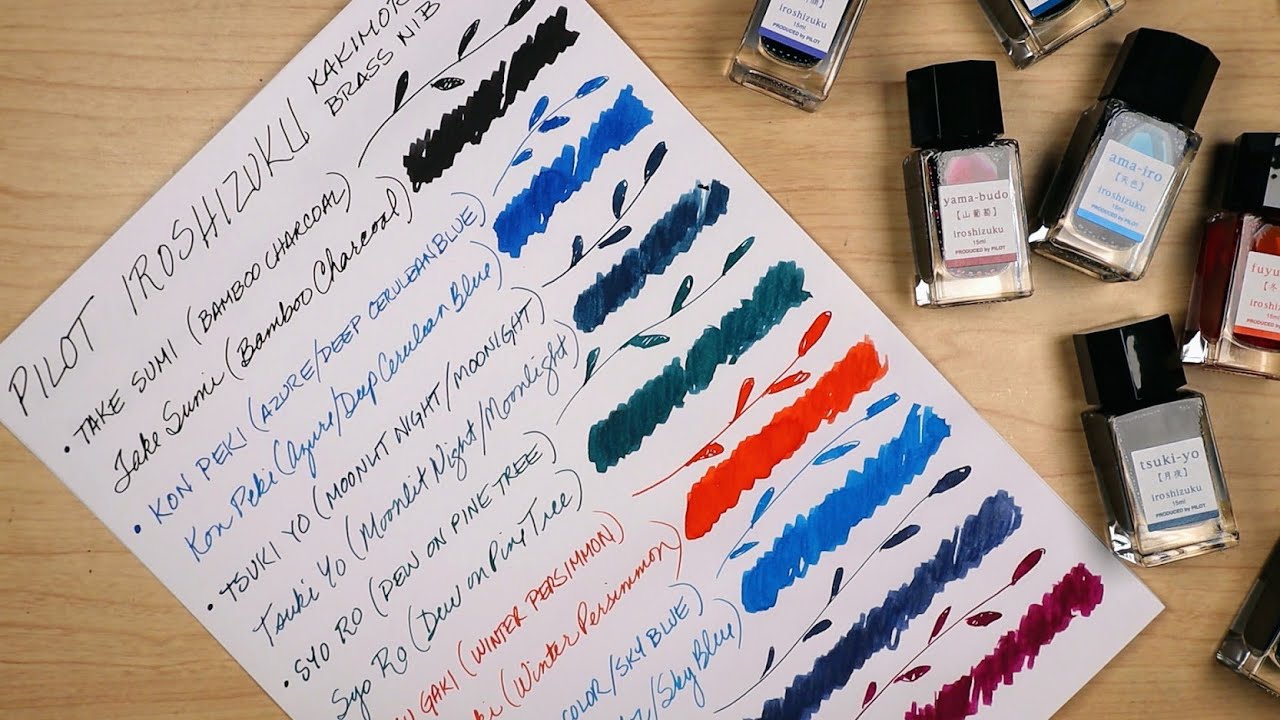 PILOT IROSHIZUKU
BRASS NIB
• TAKE SUMI (BAMBOO CHARCOAL)
Take Sumi (Bamboo Charcoal)
• KON PEKI (AZURE/DEEP CERULEAN BLUE)
Kon Peki (Azure/Deep Cerulean Blue)
• TSUKI YO (MOONLIT NIGHT/MOONIGHT)
Tsuki Yo (Moonlit Night/Moonlight)
• SYO RO (DEW ON PINE TREE)
Syo Ro (Dew on Pine Tree)
GAKI (WINTER PERSIMMON)
(Winter Persimmon)
COLOR/SKY BLUE)
/Sky Blue)
iroshizuku
15ml
PRODUCED by PILOT
yama-budo
【山葡萄】
iroshizuku
15ml
PRODUCED by PILOT
ama-iro
【天色】
iroshizuku
15ml
PRODUCED by PILOT
tsuki-yo
【月夜】
iroshizuku
15ml
PRODUCED by PILOT